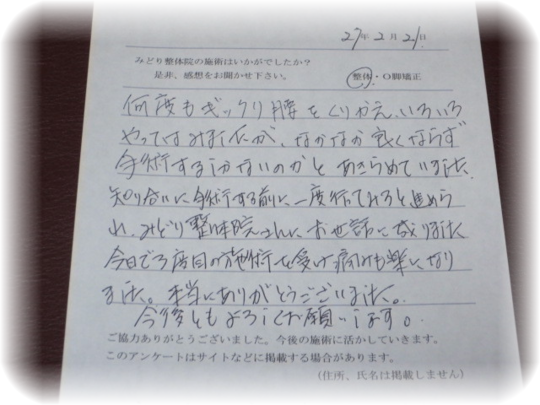 27年2月21日
みどり整体院の施術はいかがでしたか?
是非、感想をお聞かせ下さい。
整体・O脚矯正
何度もぎっくり腰をくりかえし、いろいろ
やってはみましたが、なかなか良くならず
手術するしかないのかと あきらめていました。
知り合いに手術する前に一度行てみろと進めら
れ、みどり整体院さんに お世話になりました
今日で3度目の施術を受け痛みも楽になり
ました。本当にありがとうございました。
今後ともよろしくお願いします。
ご協力ありがとうございました。今後の施術に活かしていきます。
このアンケートはサイトなどに掲載する場合があります。
(住所、氏名は掲載しません)